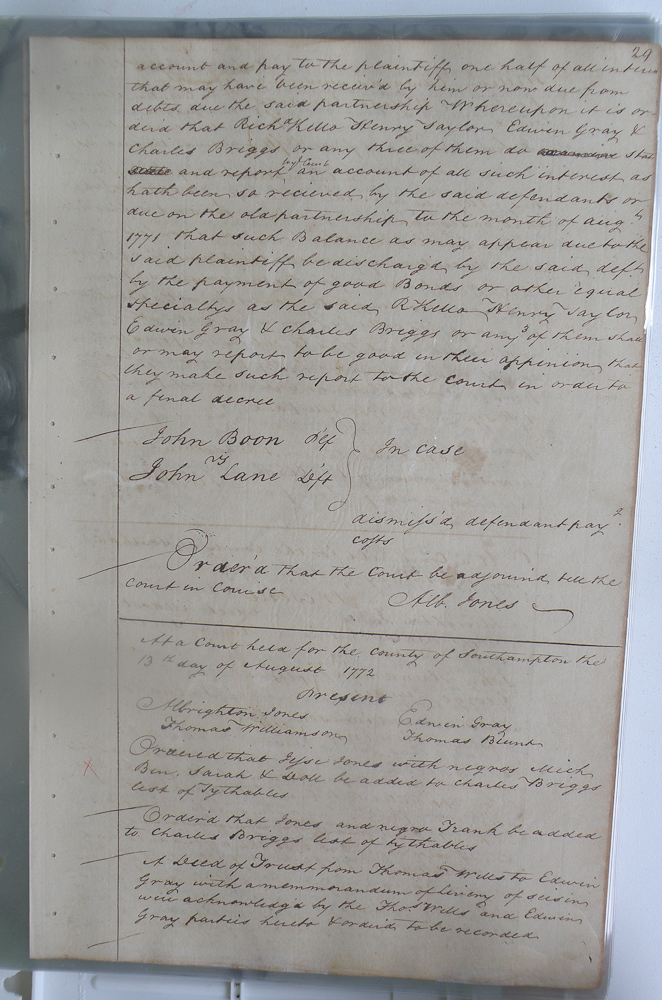 29
account and pay to the plaintiff one half of all interes
that may have been receiv'd by him or now due from
debts due the said partnership Whereupon it is or
derd that Richd Kello Henry Taylor Edwin Gray &
Charles Briggs or any three of them do stat
and report by Court an account of all such interest as
hath been so recieved by the said defendants or
due on the old partnership to the month of Aug.
1771 that such Balance as may appear due to the
said plaintiff be discharg'd by the said deft
by the payment of good Bonds or other equal
specialtys as the said R Kello Henry Taylor
Edwin Gray & Charles Briggs or any 3 of them shall
or may report to be good in their oppinion that
they make such report to the court in order to
a final decree
John Boon Plf
vs In case
John Lane Deft
dismiss'd defendant pays
costs
Order'd that the Court be adjourned till the
Court in Course
Alb. Jones
At a Court held for the County of Southampton the
13th day of August 1772
Present
Albrighton Jones Edwin Gray
Thomas Williamson Thomas Blunt
Ordered that Jesse Jones with negros Mich
Ben, Sarah & Doll be added to Charles Briggs
list of Tythables
Order'd that Jones and negro Frank be added
to Charles Briggs list of tythables
A Deed of Trust from Thomas Wills to Edwin
Gray with a memmorandum of livery of seisen
were acknowledg'd by the Thos Wills and Edwin
Gray parties hereto & orderd to be recorded